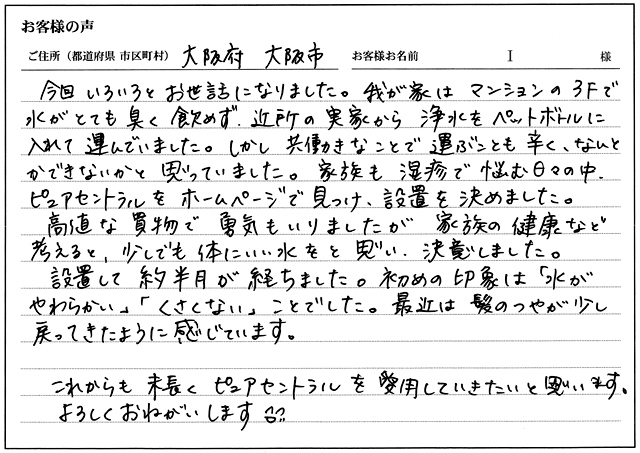 お客様の声
ご住所（都道府県 市区町村） 大阪府 大阪市 お客様お名前 I 様
今回 いろいろと お世話になりました。我が家は マンションの 3Fで
水がとても臭く 飲めず、近所の 実家から 浄水をペットボトルに
入れて 運んでいました。しかし 共働きなことで 運ぶことも 辛く、なんと
かできないかと 思っていました。家族も 湿疹で 悩む日々の中、
ピュアセントラルを ホームページで 見つけ、設置を 決めました。
高値な 買物で 勇気もいりましたが 家族の 健康など
考えると、少しでも 体にいい水をと 思い、決意しました。
設置して 約半月が 経ちました。初めの 印象は「水が
やわらかい」「くさくない」ことでした。最近は 髪のつやが少し
戻ってきたように 感じています。
これからも 末長く ピュアセントラルを 愛用していきたいと 思います。
よろしくおねがいします